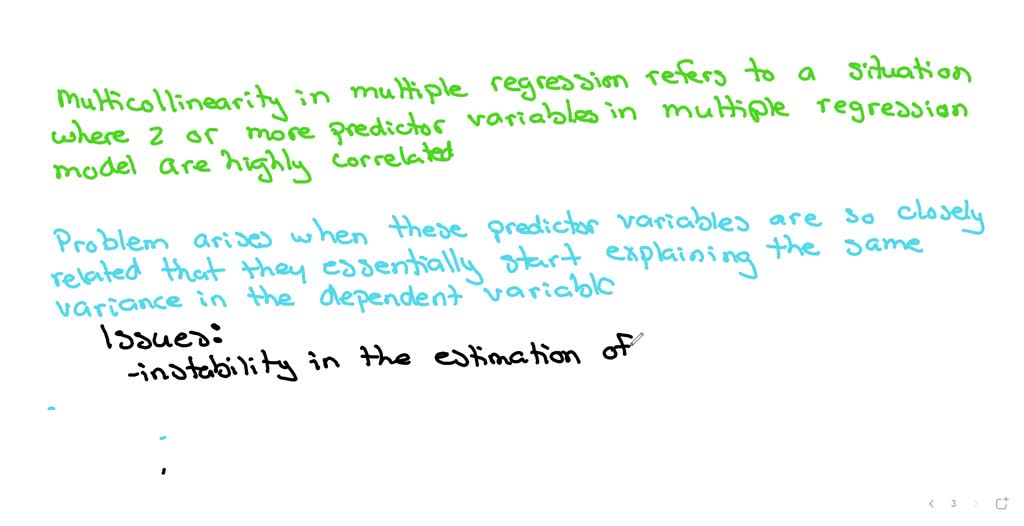 Multicollinearity in multiple regression refers to a situation
where 2 or more predictor variables in multiple regression
model are highly correlated
Problem arises when these predictor variables are so closely
related that they essentially start explaining the same
variance in the dependent variable
Issues:
-instability in the estimation of
3